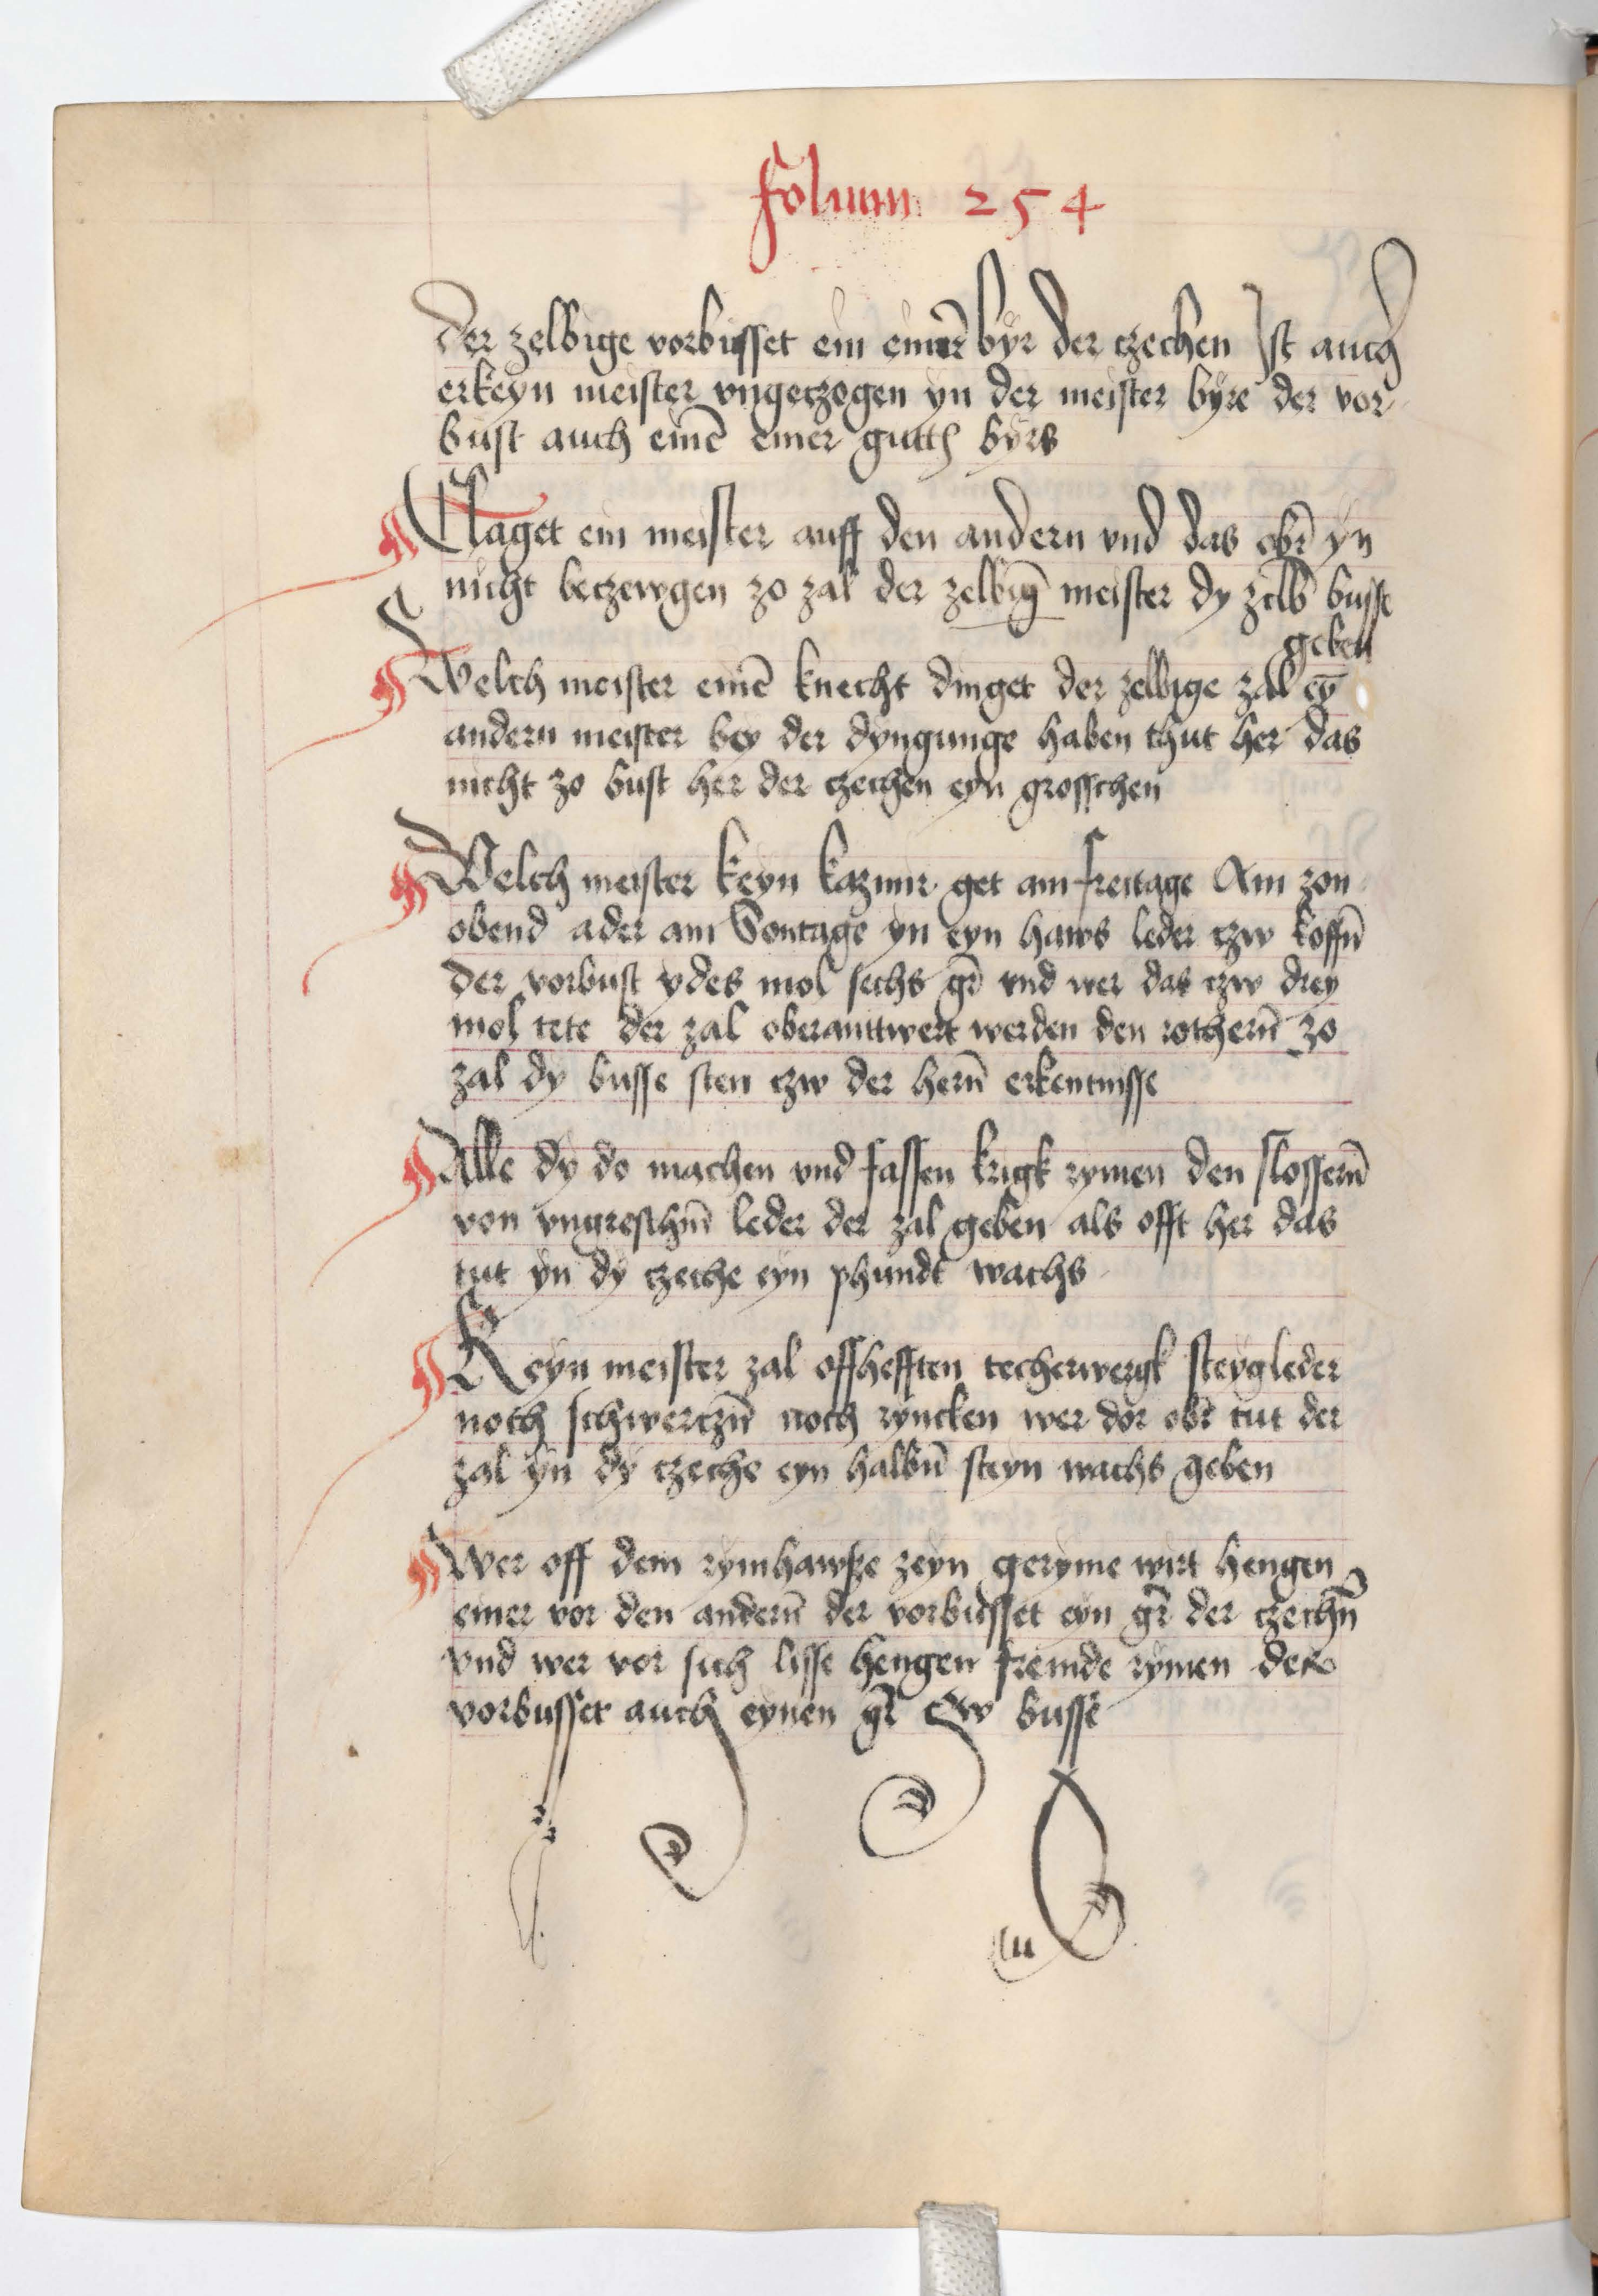 folium 254
Der zelbige vorbusset ein eimer byr der czechen Jst auch
erkeyn meister vngeczogen yn der meister byre der vor
bust auch einē eimer gutth byrs
Claget ein meister auff den andern vnd das obir yn
nicht beczewgen zo zal der zelbiḡ meister dy zelb̄ busse
geben
Welch meister einē knecht dinget der zelbige zal ey̅
andern meister bey der dyngunge haben thut her das
nicht zo bust her der czechen eyn grosschen
Welch meister keyn kazmir get am freitage Am zon
obend ader am Sontage yn eyn haws leder czw koffn̄
der vorbust ydes mol sechs gr̄ vnd wer das czw drey
mol tete der zal oberanttwert werden den rothern̄ zo
zal dy busse sten czw der hern̄ erkentnisse
Alle dy do machen vnd fassen krigk rymen den slossern̄
von vngreschm̄ leder der zal geben als offt her das
tut yn dy czeche eyn phundt wachs
Keyn meister zal offhefften techerwergk steygleder
noch schwerczn̄ noch ryncken wer dor obir tut der
zal yn dy czeche eyn halbn̄ steyn wachs geben
Wer off dem rymhawße zeyn geryme wirt hengen
einer vor den andern̄ der vorbusset eyn gr̄ der czechn̄
vnd wer vor sich lisse hengen fremde rymen der
vorbusset auch eynen gr̄ Czw busse